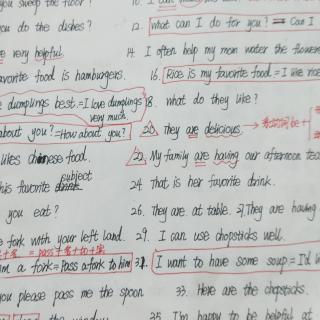 you sweep the floor?
you do the dishes? 12. what can I do for you? = Can I
are very helpful. 14. I often help my mom water the flowers
favorite food is hamburgers. 16. Rice is my favorite food = I like rice
dumplings best. = I love dumplings very much. 18. what do they like?
about you? = How about you? 20. They are delicious.
likes chinese food. 22. My family are having our afternoon tea
his favorite subject 24. That is her favorite drink.
you eat? 26. They are at table. 27. They are having
fork with your left land. 29. I can use chopsticks well.
a fork = Pass a fork to him 31. I want to have some soup = I'd
you please pass me the spoon 33. Here are the chopsticks.
the window 35. I'm happy to be helpful at